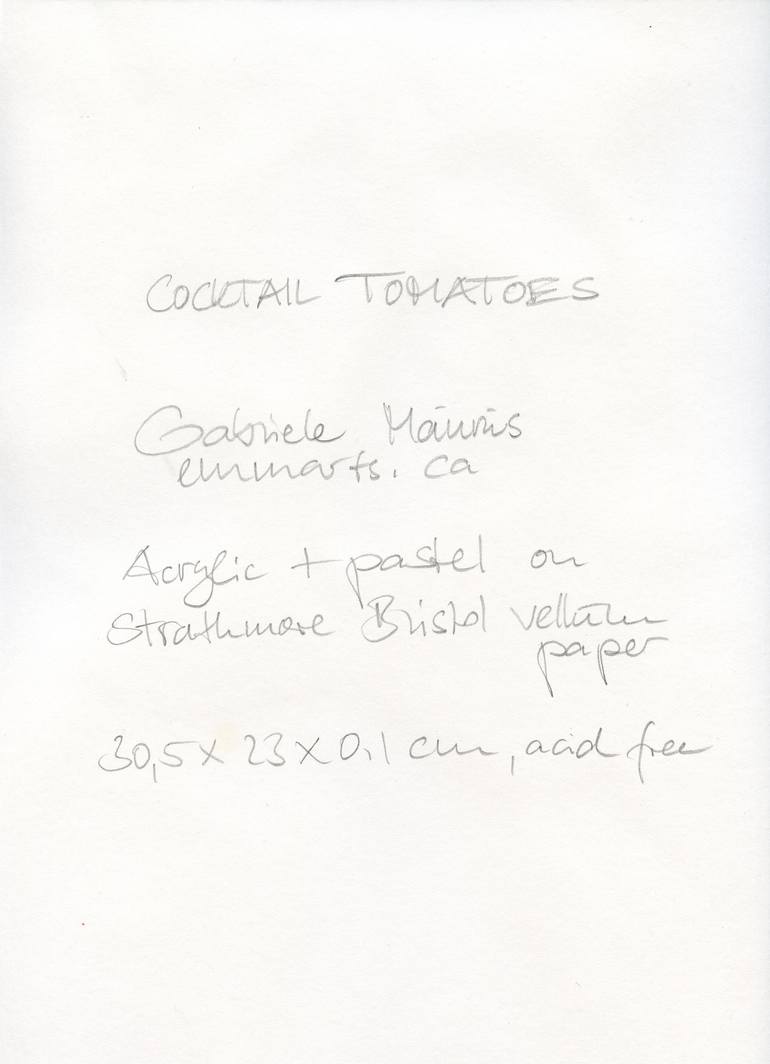 COCKTAIL TOMATOES
Gabriele Maurus
emmarts.ca
Acrylic + pastel on
Strathmore Bristol vellum
paper
30,5 x 23 x 0.1 cm, acid free